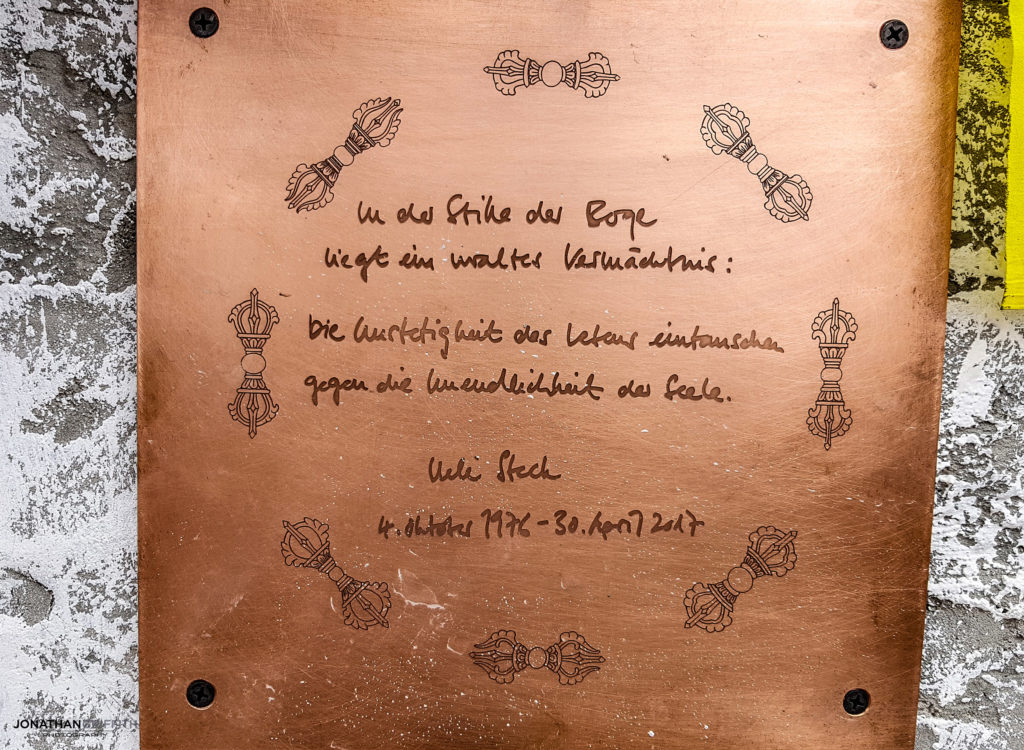 In der Stille der Berge
liegt ein uraltes Vermächtnis:
Die Unstetigkeit des Lebens eintauschen
gegen die Unendlichkeit der Seele.
Ueli Steck
4. Oktober 1976 - 30. April 2017
JONATHAN GRIFFITH
PHOTOGRAPHY